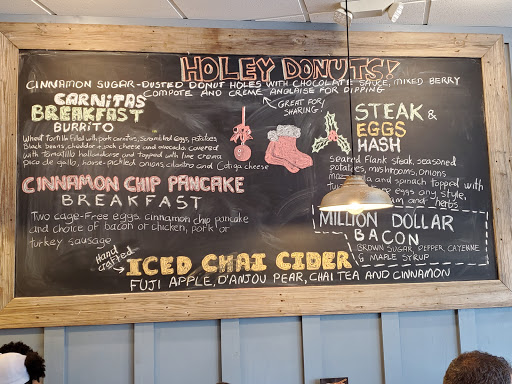 HOLEY DONUTS!
CINNAMON SUGAR-DUSTED DONUT HOLES WITH CHOCOLATE SAUCE, MIXED BERRY
COMPOTE AND CREME ANGLAISE FOR DIPPING.
GREAT FOR
SHARING!
CARNITAS
BREAKFAST
BURRITO
Wheat Tortilla filled with pork carnitas, scrambled eggs, potatoes
Black beans, cheddar & jack cheese and avocado. covered
with Tomatillo hollandaise and topped with lime crema
pico de gallo, house-pickled onions, cilantro and Cotija cheese
CINNAMON CHIP PANCAKE
BREAKFAST
Two cage-free eggs, cinnamon chip pancake
and choice of bacon or chicken, pork or
turkey sausage
STEAK &
EGGS
HASH
seared flank steak, seasoned
potatoes, mushrooms, onions
and spinach topped with
eggs any style,
and herbs
MILLION DOLLAR
BACON
BROWN SUGAR, PEPPER CAYENNE
& MAPLE SYRUP
Hand
crafted
ICED CHAI CIDER
FUJI APPLE, D'ANJOU PEAR, CHAI TEA AND CINNAMON